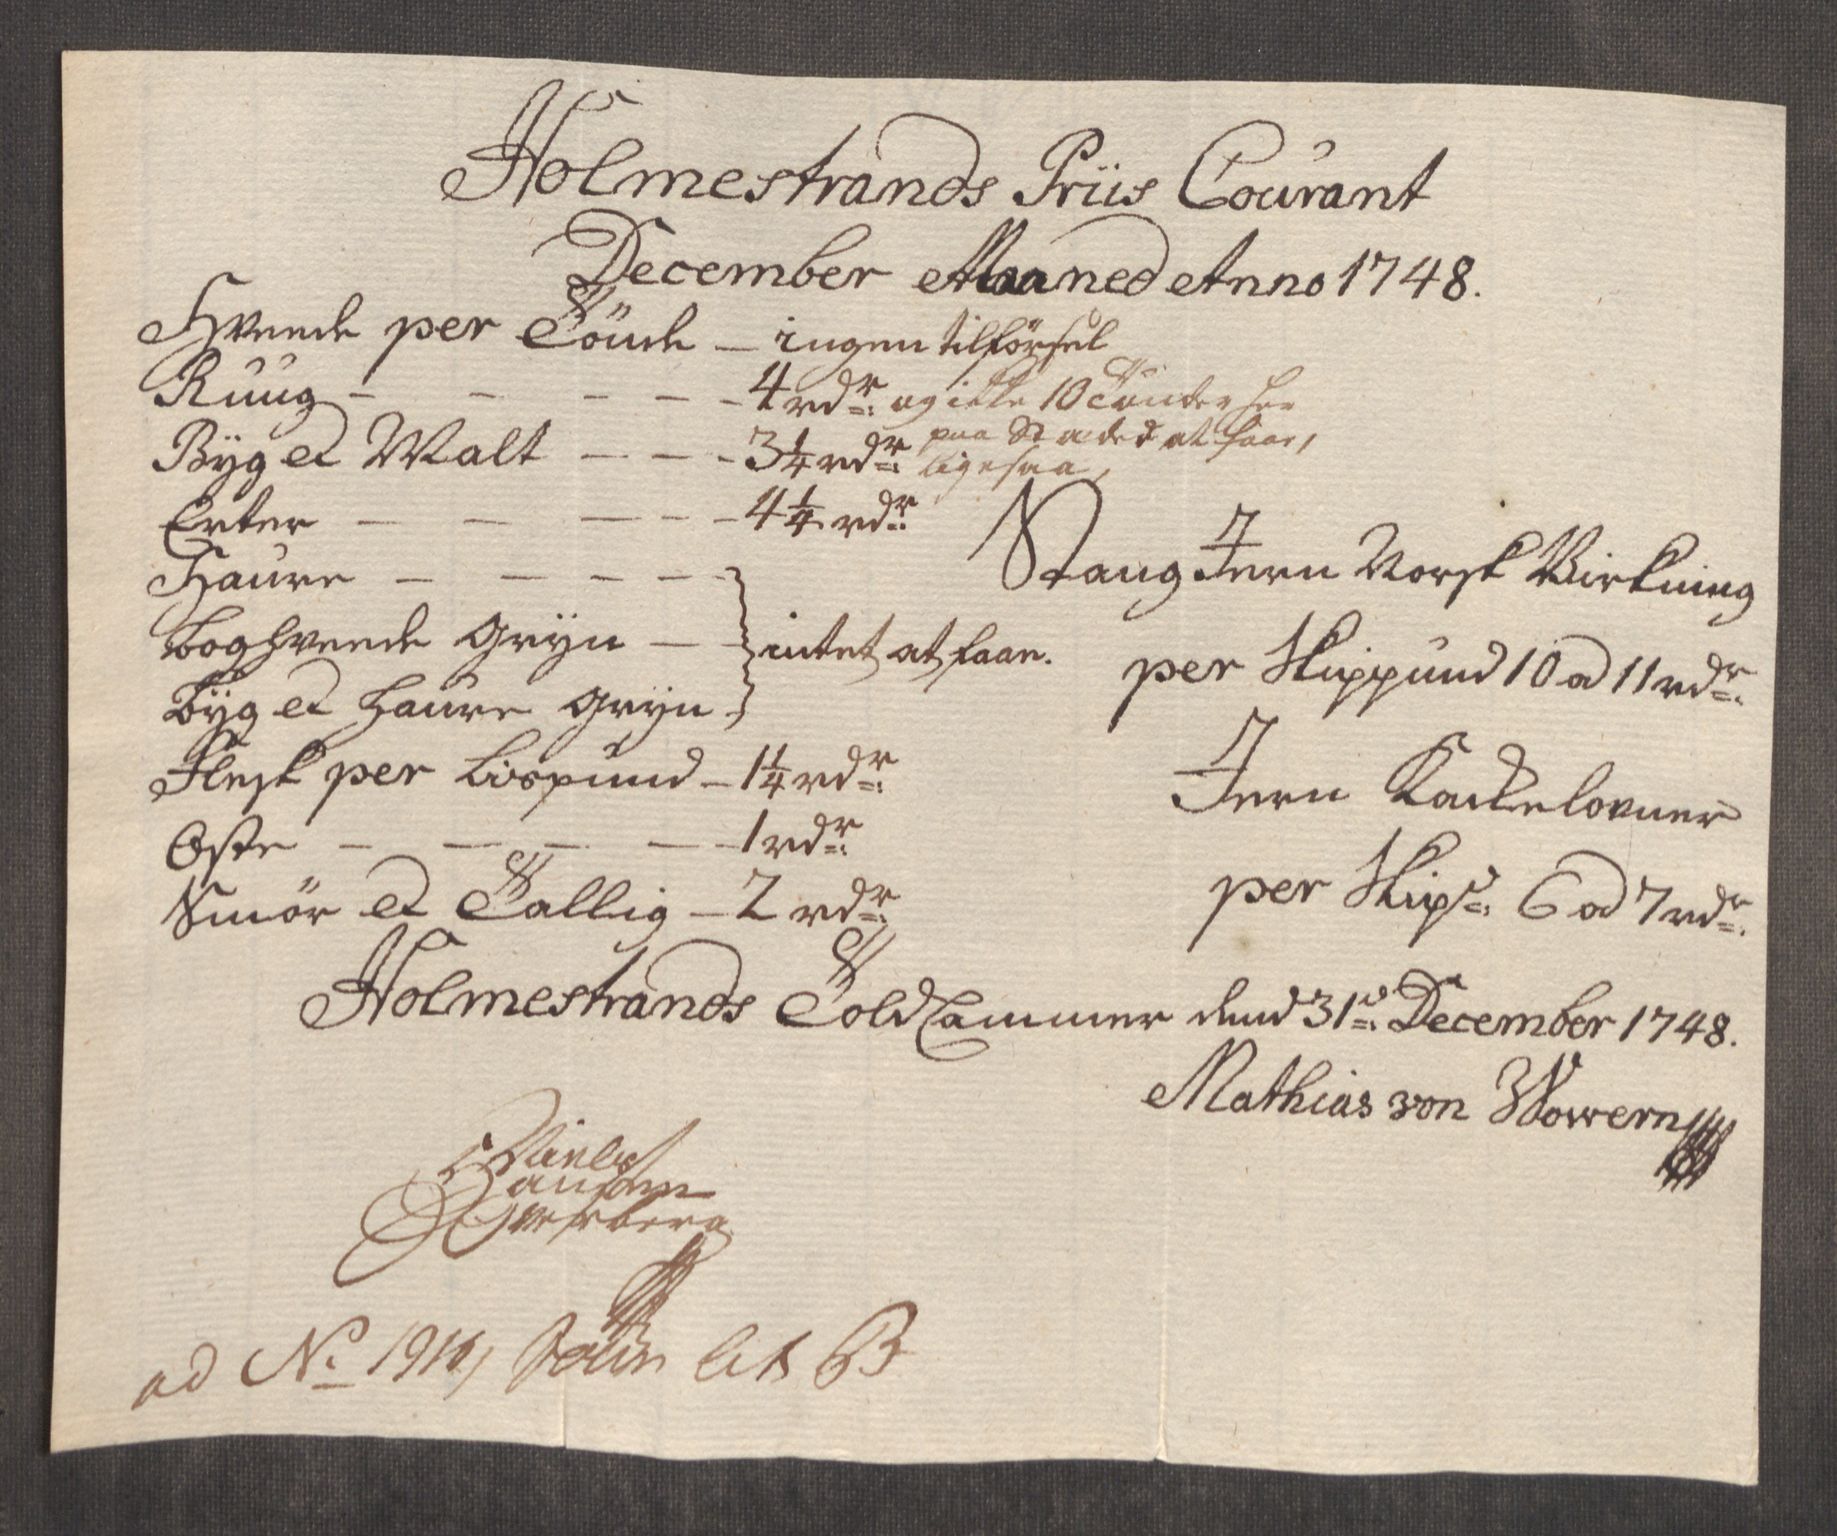 Holmestrands Priis Courant
December Maaned Anno 1748.
Hveede per Tönde — ingen tilförsel
Ruug — — — — — 4 rdr: og ikke 10 Tönder her
paa Staded at faae,
Byg et Malt — — — 3¼ rdr: ligesaa,
Erter — — — — — 4¼ rdr:
Haure — — — — —
Boghveede Gryn — — intet at faae.
Byg et Haure Gryn —
Flesk per Lispund — 1¼ rdr:
Oste — — — — — 1 rdr:
Smör et Tallig — 2 rdr:
Stang Jern Norsk Virkning
per Skippund 10 a 11 rdr:
Jern Kackelovner
per Skipd: 6 a 7 rdr:
Holmestrands Told Cammer dend 31d: December 1748.
Mathias von Wowern
Niels
Hansen
ad No 191 lit B